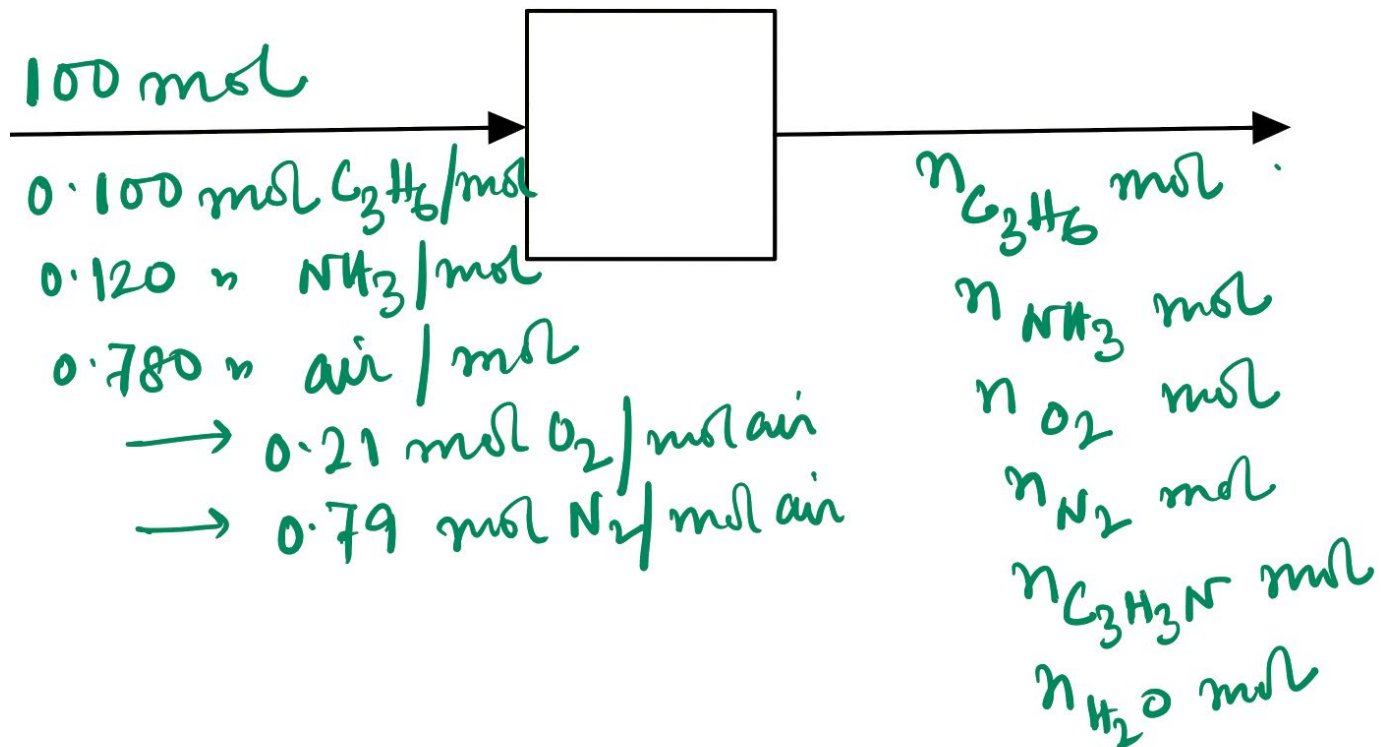 100 mol
0.100 mol C₃H₆/mol
0.120 " NH₃/mol
0.780 " air/mol
→ 0.21 mol O₂/mol air
→ 0.79 mol N₂/mol air
n C₃H₆ mol
n NH₃ mol
n O₂ mol
n N₂ mol
n C₃H₃N mol
n H₂O mol